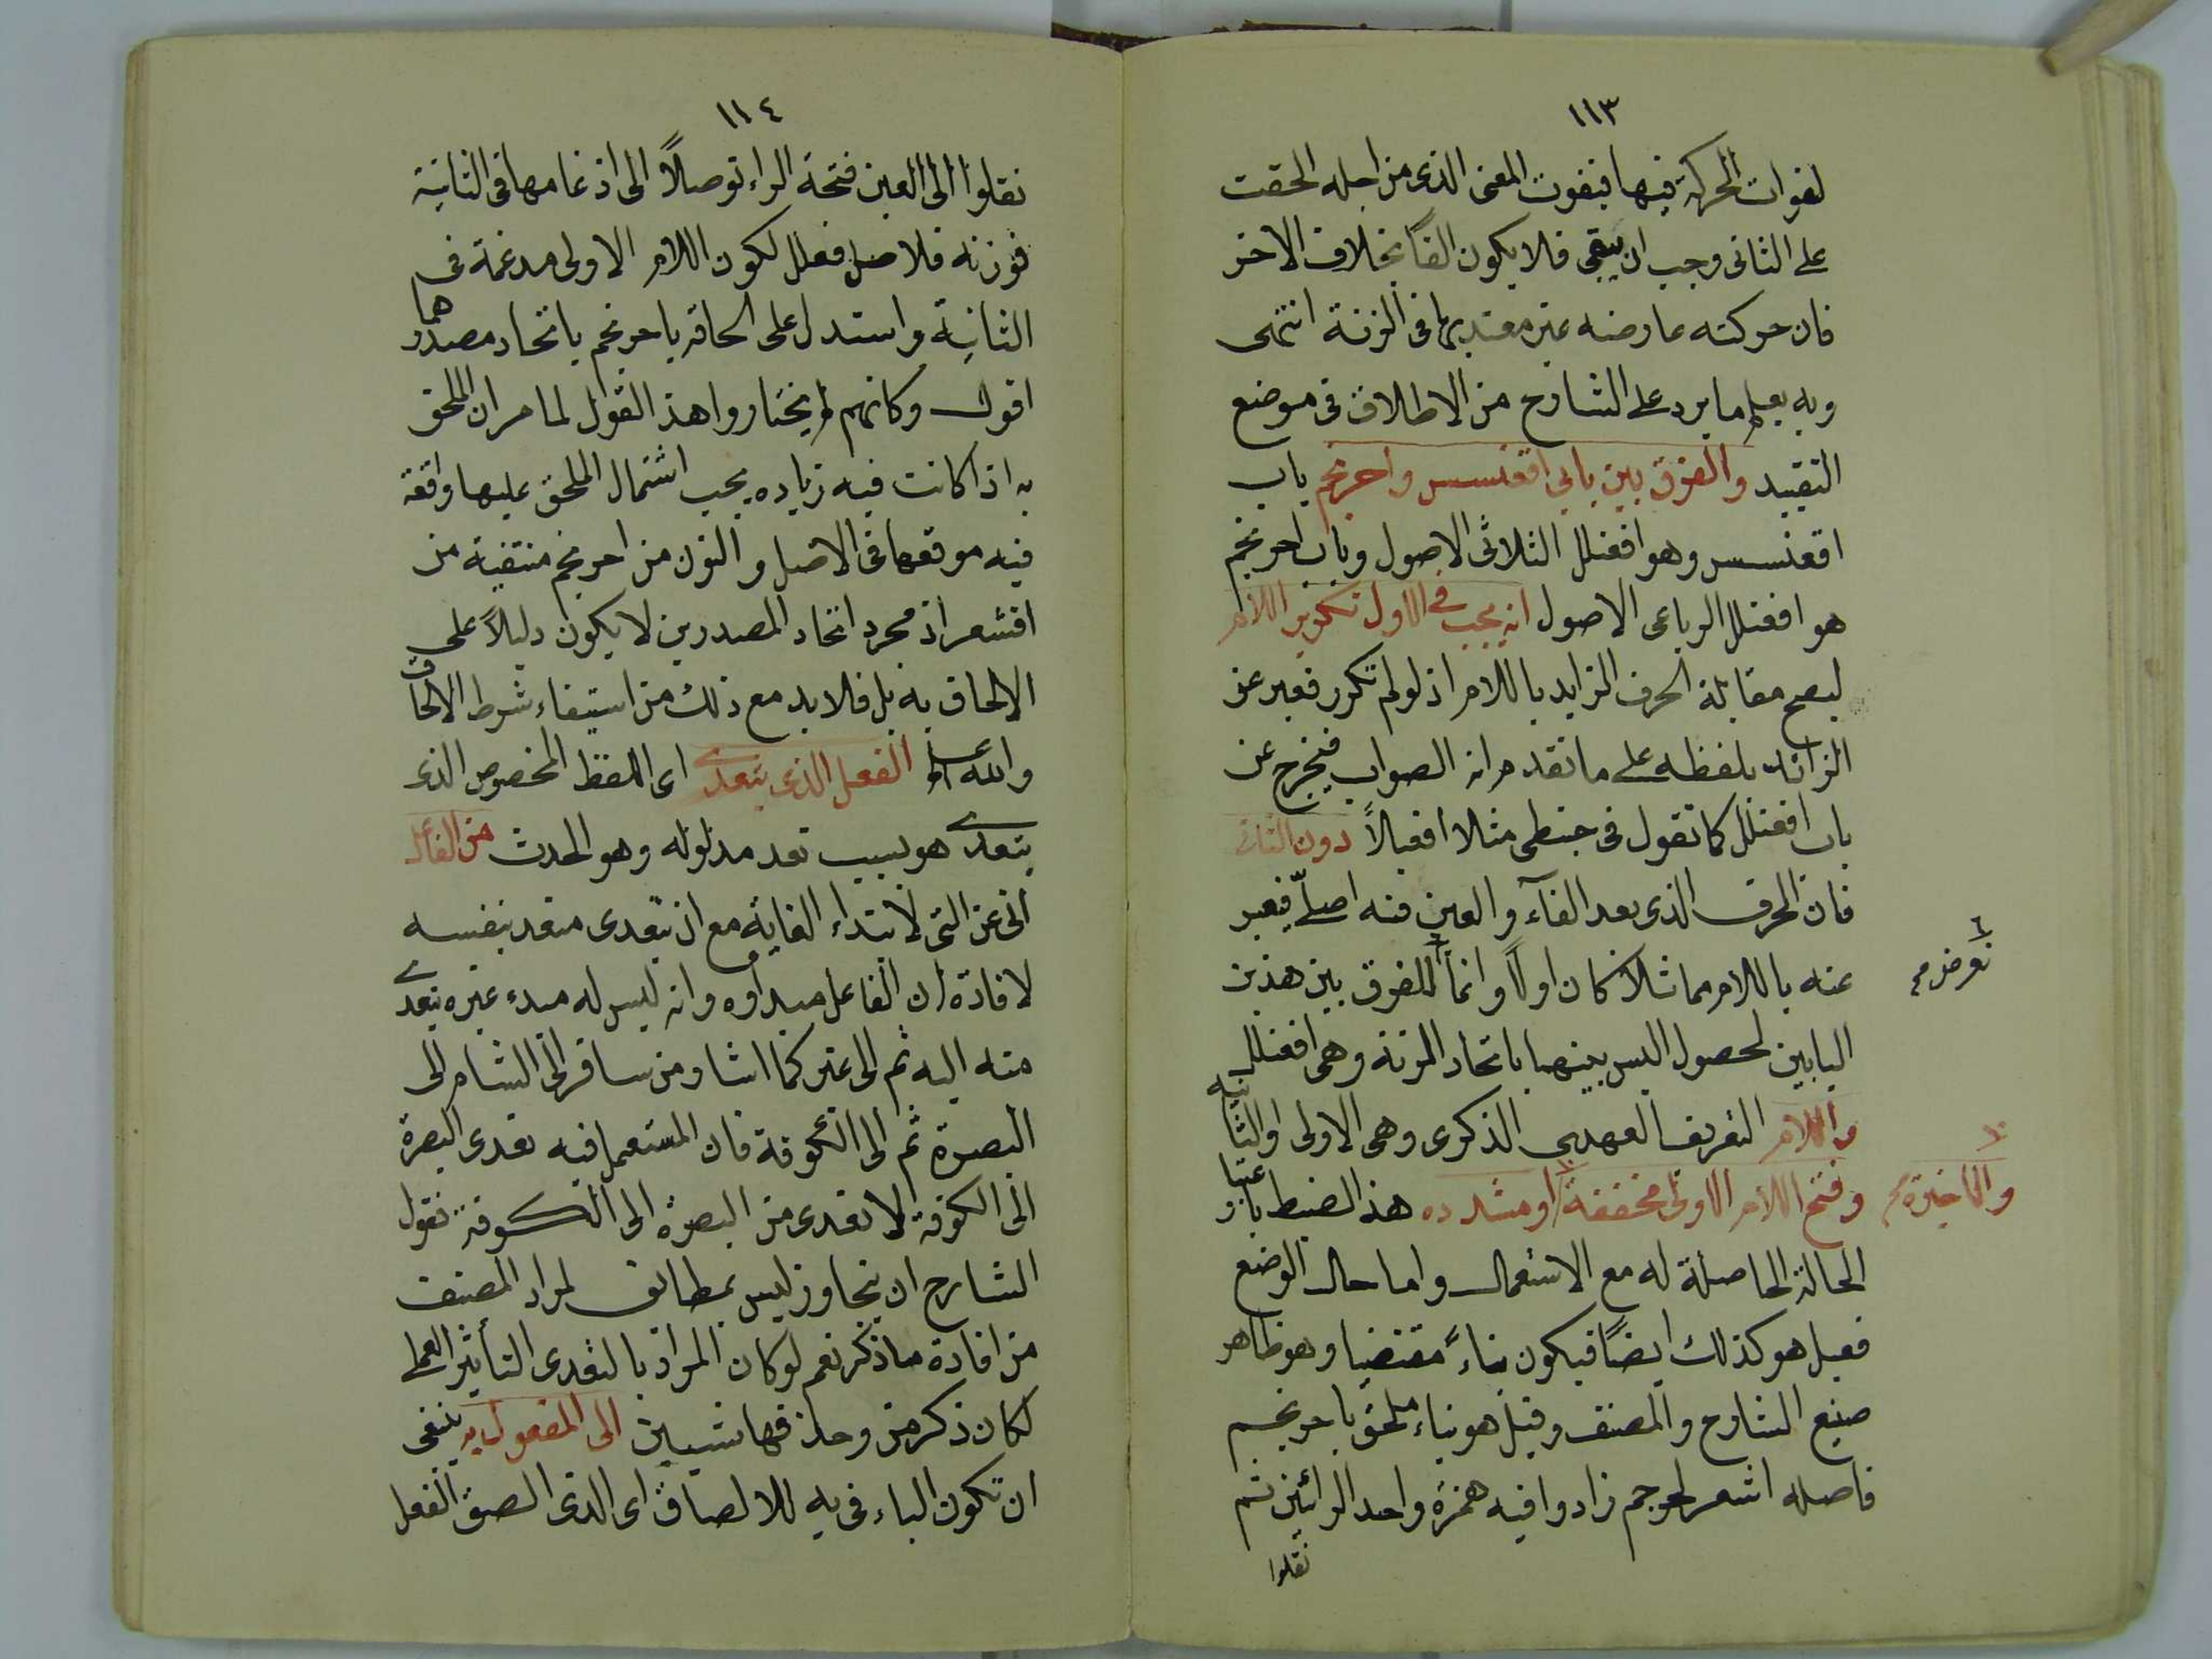 ١١٣
لفوات الحركة فيها فيفوت المعنى الذى من اجله الحقت
على الثانى وجب ان يبقى فلا يكون الفًا بخلاف الاخر
فان حركته عارضه غير معتد بها فى الزنة انتهى
وبه يعلم ما يرد على الشارح من الاطلاق فى موضع
التقييد والفرق بين بابى اقعنسس واحرنجم باب
اقعنسس وهو افعنلل الثلاثى الاصول وباب احرنجم
هو افعنلل الرباعى الاصول انه يجب فى الاول تكرير اللام
ليصح مقابلة الحرف الزايد باللام اذ لو لم تكرر فعبر عن
الزائد بلفظه على ما تقدم انه الصواب فيخرج عن
باب افعنلل كما تقول فى حنطى مثلا افعيالاً دون الثانى
فان الحرف الذى بعد الفآء والعين فيه اصلىّ فيعبر
عنه باللام مماثلا كان اولاً وانما للفرق بين هذين
تعرض صح
البابين لحصول اللبس بينهما باتحاد الزنة وهى افعنلل
واللام التعريف العهدى الذكرى وهى الاولى والثانية
وفتح اللام الاولى مخففة او مشدده هذا الضبط باعتبار
والاخيرة صح
الحالة الحاصلة له مع الاستعمال واما حال الوضع
فعيل هو كذلك ايضًا فيكون بناءً مقتضبا وهو ظاهر
صنيع الشارح والمصنف وقيل هو بناء ملحق باحرنجم
فاصله اشعر لحرجم زادوا فيه همزة واحد الرائين ثم
نقلوا
١١٤
نقلوا الى العين فتحة الراء توصلاً الى ادغامها فى الثانية
فوزنه فلاصل فعلل لكون اللام الاولى مدغمة فى
الثانية واستدل على الحاقه باحرنجم باتحاد مصدرهما
اقول وكانهم لم يختاروا هذا القول لما مر ان الملحق
به اذا كانت فيه زياده يجب اشتمال الملحق عليها واقعة
فيه موقعها فى الاصل والنون من احرنجم منتفية من
اقشعر اذ مجرد اتحاد المصدرين لا يكون دليلاً على
الالحاق به بل فلا بد مع ذلك من استيفاء شرط الالحاق
والله اعلم الفعل الذى يتعدى اى اللفظ المخصوص الذى
يتعدى هو بسبب تعد مدلوله وهو الحدث من الفاعل
اتى عن التى لابتداء الغاية مع ان تعدى متعد بنفسه
لافادة ان الفاعل مبداوه وانه ليس له مبدء غيره يتعدى
منه اليه ثم الى غير كما اشار من سافر الى الشام الى
البصرة ثم الى الكوفة فان المستعمل فيه تعدى البصرة
الى الكوفة لا تعدى من البصرة الى الكوفة تقول
الشارح ان يتجاوز ليس بمطابق لمراد المصنف
من افادة ما ذكر نعم لو كان المراد بالتعدى التأثير العملى
لكان ذكر من وحذفها شيين الى المفعول به ينبغى
ان تكون الباء فى به للالصاق اى الذى الصق الفعل